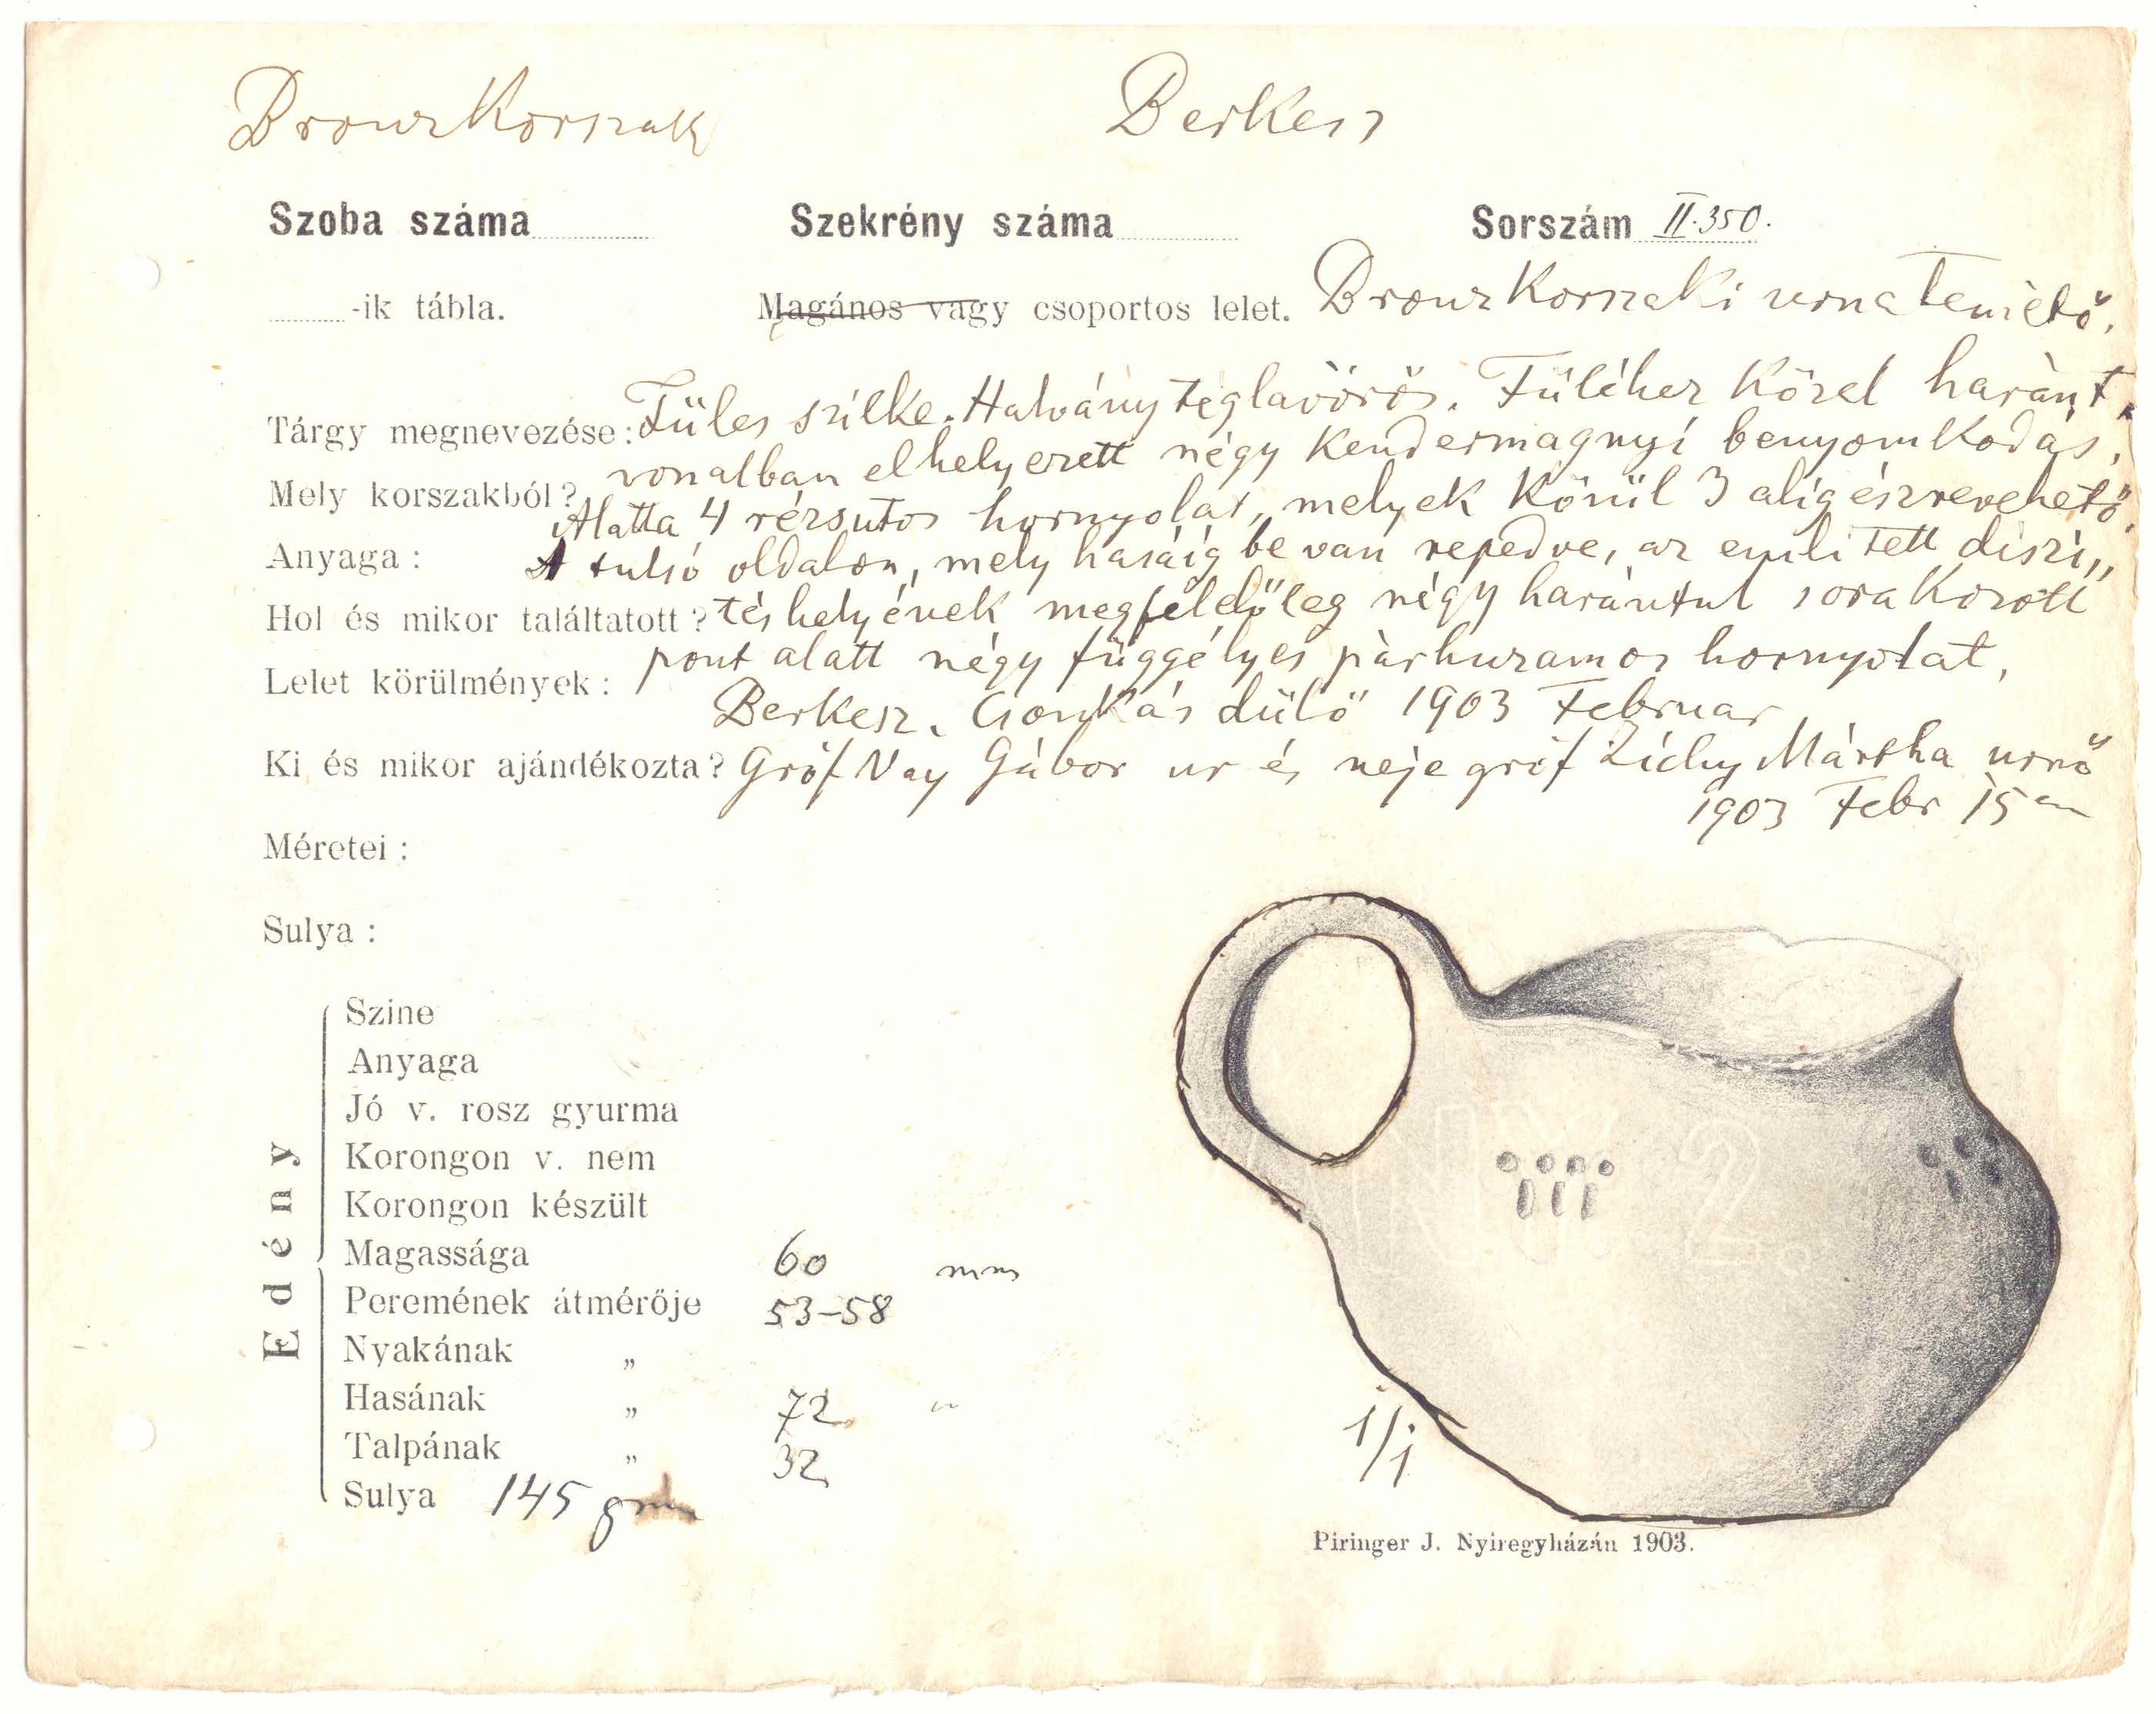 Bronzkorszak Berkesz
Szoba száma Szekrény száma Sorszám II.350.
-ik tábla. Magános vagy csoportos lelet. Bronzkorszaki urnatemető.
Tárgy megnevezése: Füles szilke. Halvány téglavörös. Füléhez közel haránt
Mely korszakból? vonalban elhelyezett négy kendermagnyi benyomkodás,
Alatta 4 rézsutos hornyolat, melyek körül 3 alig észrevehető.
Anyaga: A tulsó oldalon, mely hasáig be van repedve, az emlitett diszi„
Hol és mikor találtatott? tés helyének megfelelőleg négy harántul sorakozott
pont alatt négy függélyes párhuzamos hornyolat.
Lelet körülmények: Berkesz. Csonkás dülő 1903 Februar
Ki és mikor ajándékozta? Gróf Vay Gábor ur és neje gróf Zichy Mártha urnő
1903 Febr 15 én
Méretei:
Sulya:
Edény
Szine
Anyaga
Jó v. rosz gyurma
Korongon v. nem
Korongon készült
Magassága 60 mm
Peremének átmérője 53–58
Nyakának „
Hasának „ 72 „
Talpának „ 32
Sulya 145 gm
1/1
Piringer J. Nyiregyházán 1903.